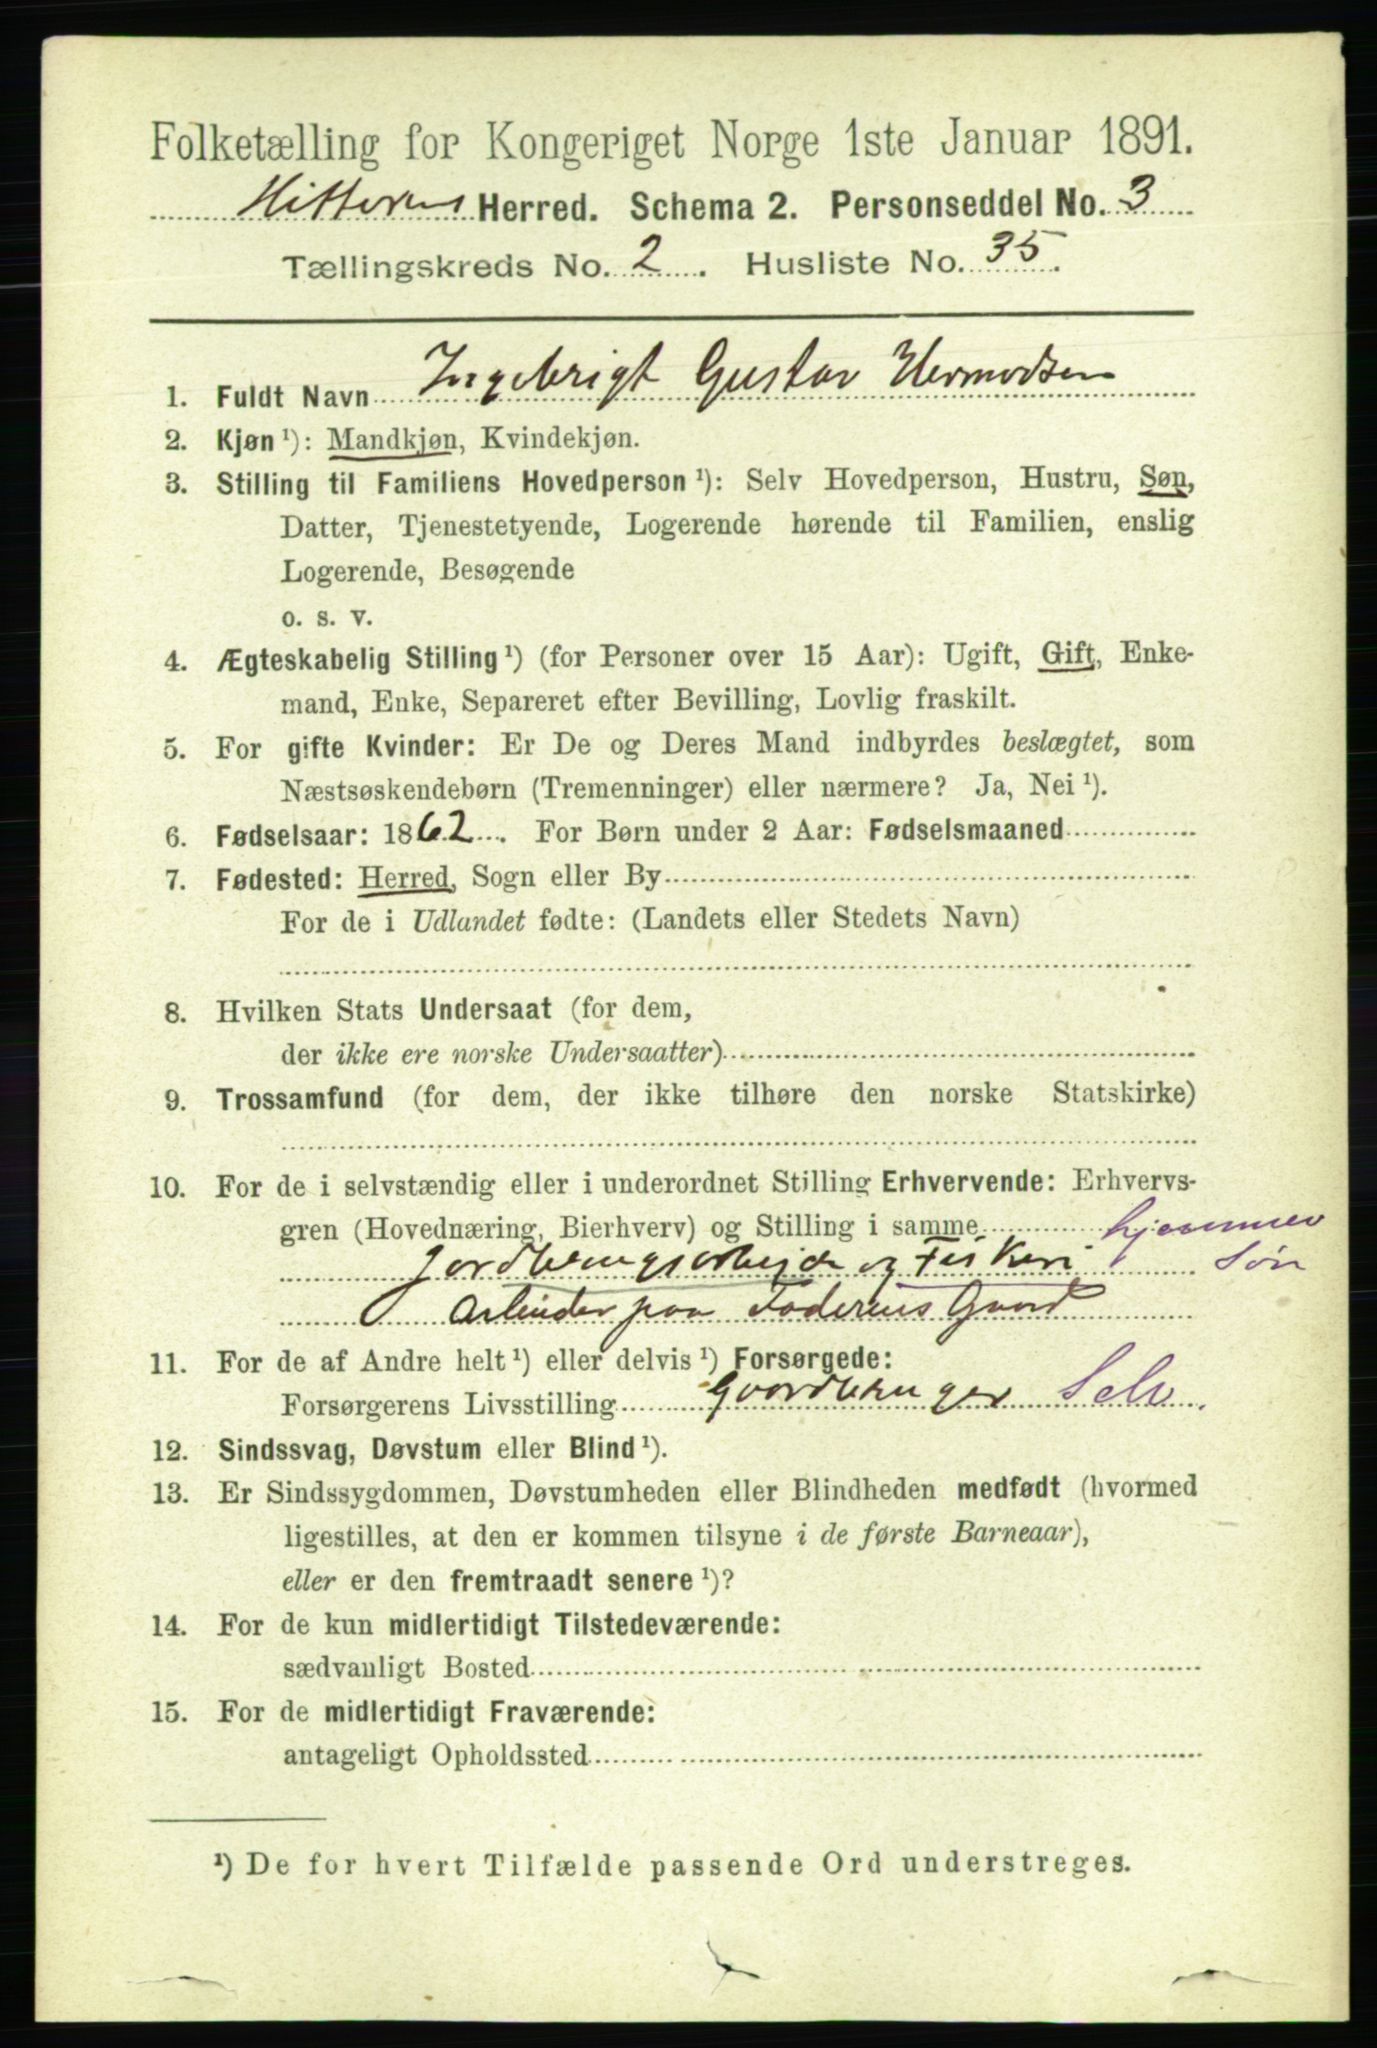 Folketælling for Kongeriget Norge 1ste Januar 1891.
Hitterens Herred. Schema 2. Personseddel No. 3
Tællingskreds No. 2. Husliste No. 35.
1. Fuldt Navn Ingebrigt Gustav Hermodsen
2. Kjøn ¹): Mandkjøn, Kvindekjøn.
3. Stilling til Familiens Hovedperson ¹): Selv Hovedperson, Hustru, Søn,
Datter, Tjenestetyende, Logerende hørende til Familien, enslig
Logerende, Besøgende
o. s. v.
4. Ægteskabelig Stilling ¹) (for Personer over 15 Aar): Ugift, Gift, Enke-
mand, Enke, Separeret efter Bevilling, Lovlig fraskilt.
5. For gifte Kvinder: Er De og Deres Mand indbyrdes beslægtet, som
Næstsøskendebørn (Tremenninger) eller nærmere? Ja, Nei ¹).
6. Fødselsaar: 1862. For Børn under 2 Aar: Fødselsmaaned
7. Fødested: Herred, Sogn eller By
For de i Udlandet fødte: (Landets eller Stedets Navn)
8. Hvilken Stats Undersaat (for dem,
der ikke ere norske Undersaatter)
9. Trossamfund (for dem, der ikke tilhøre den norske Statskirke)
10. For de i selvstændig eller i underordnet Stilling Erhvervende: Erhvervs-
gren (Hovednæring, Bierhverv) og Stilling i samme hjemmev
Jordbrugsarbejde og Fiskeri Søn
Arbeider paa Faderens Gaard
11. For de af Andre helt ¹) eller delvis ¹) Forsørgede:
Forsørgerens Livsstilling Gaardbruger Selv.
12. Sindssvag, Døvstum eller Blind ¹).
13. Er Sindssygdommen, Døvstumheden eller Blindheden medfødt (hvormed
ligestilles, at den er kommen tilsyne i de første Barneaar),
eller er den fremtraadt senere ¹)?
14. For de kun midlertidigt Tilstedeværende:
sædvanligt Bosted
15. For de midlertidigt Fraværende:
antageligt Opholdssted
¹) De for hvert Tilfælde passende Ord understreges.